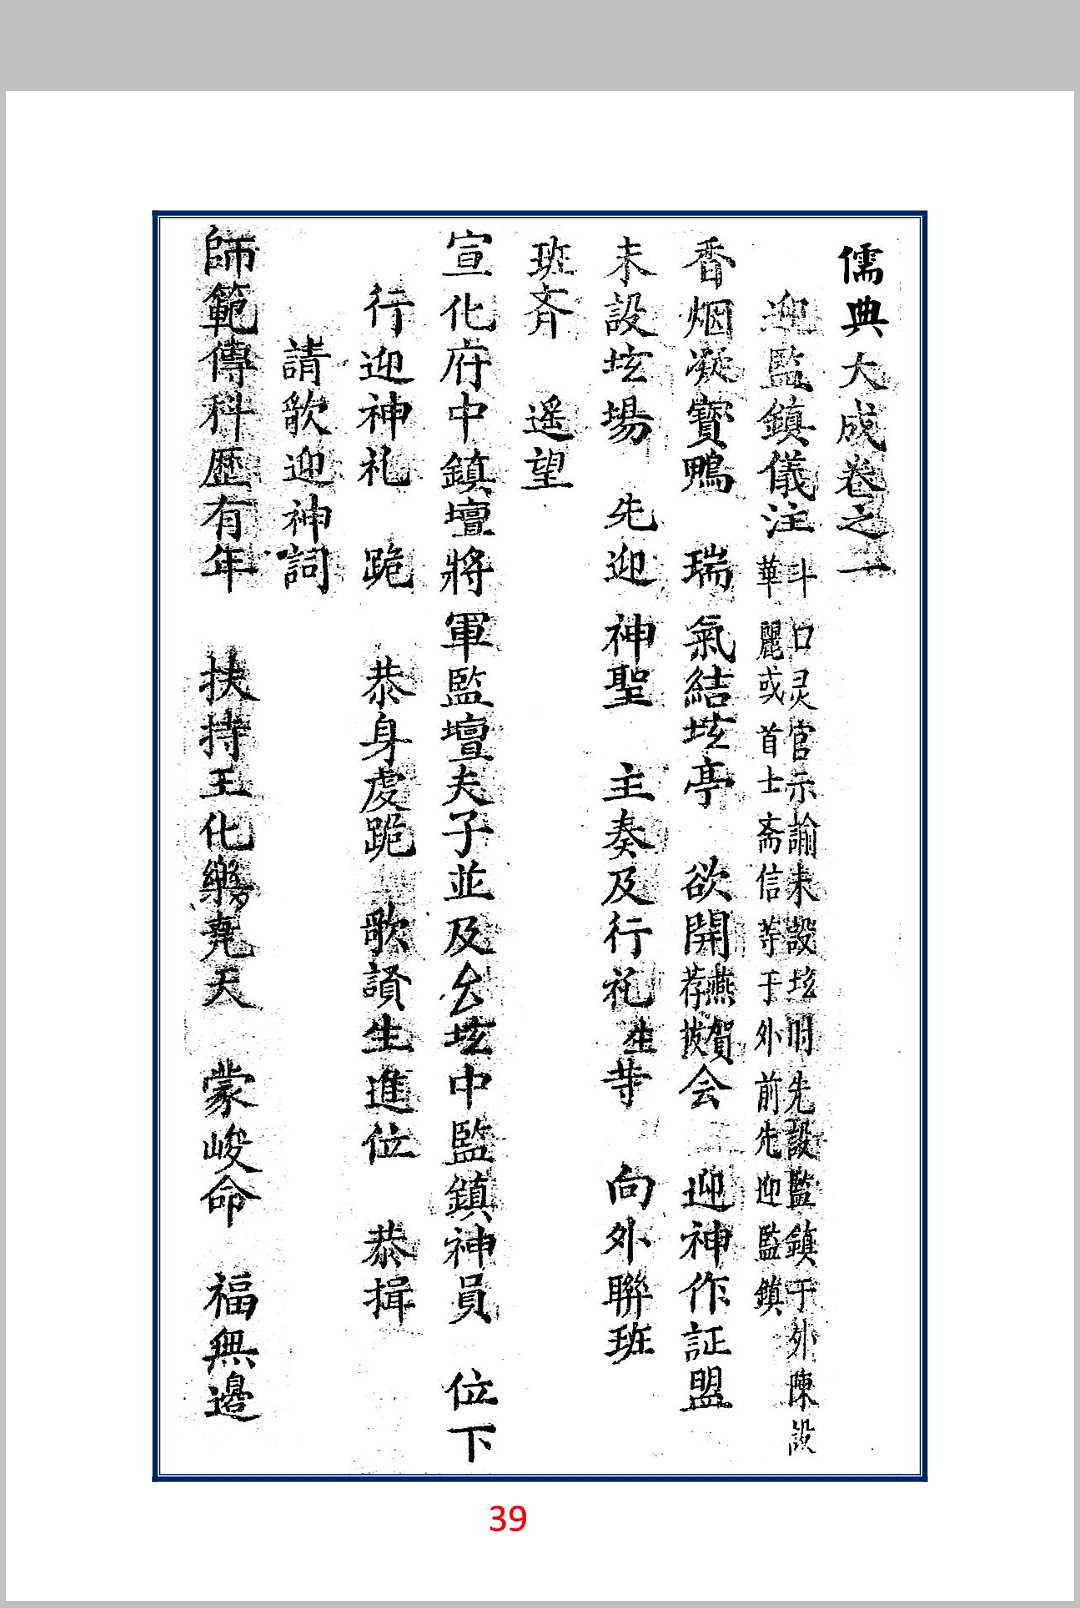 儒典大成卷之一
迎監鎮儀注 斗口灵官示諭未設坛明先設監鎮于外陳設
華麗或首士斋信等于外前先迎監鎮
香烟凝寶鴨 瑞氣結坛亭 欲開燕賀荐拔会 迎神作証盟
未設坛場 先迎神聖 主奏及行礼生等 向外聯班
班齐 遥望
宣化府中鎮壇將軍監壇夫子並及玄坛中監鎮神員 位下
行迎神礼 跪 恭身虔跪 歌讃生進位 恭揖
請歌迎神詞
師範傳科歷有年 扶持王化樂尭天 蒙峻命 福無邊
39